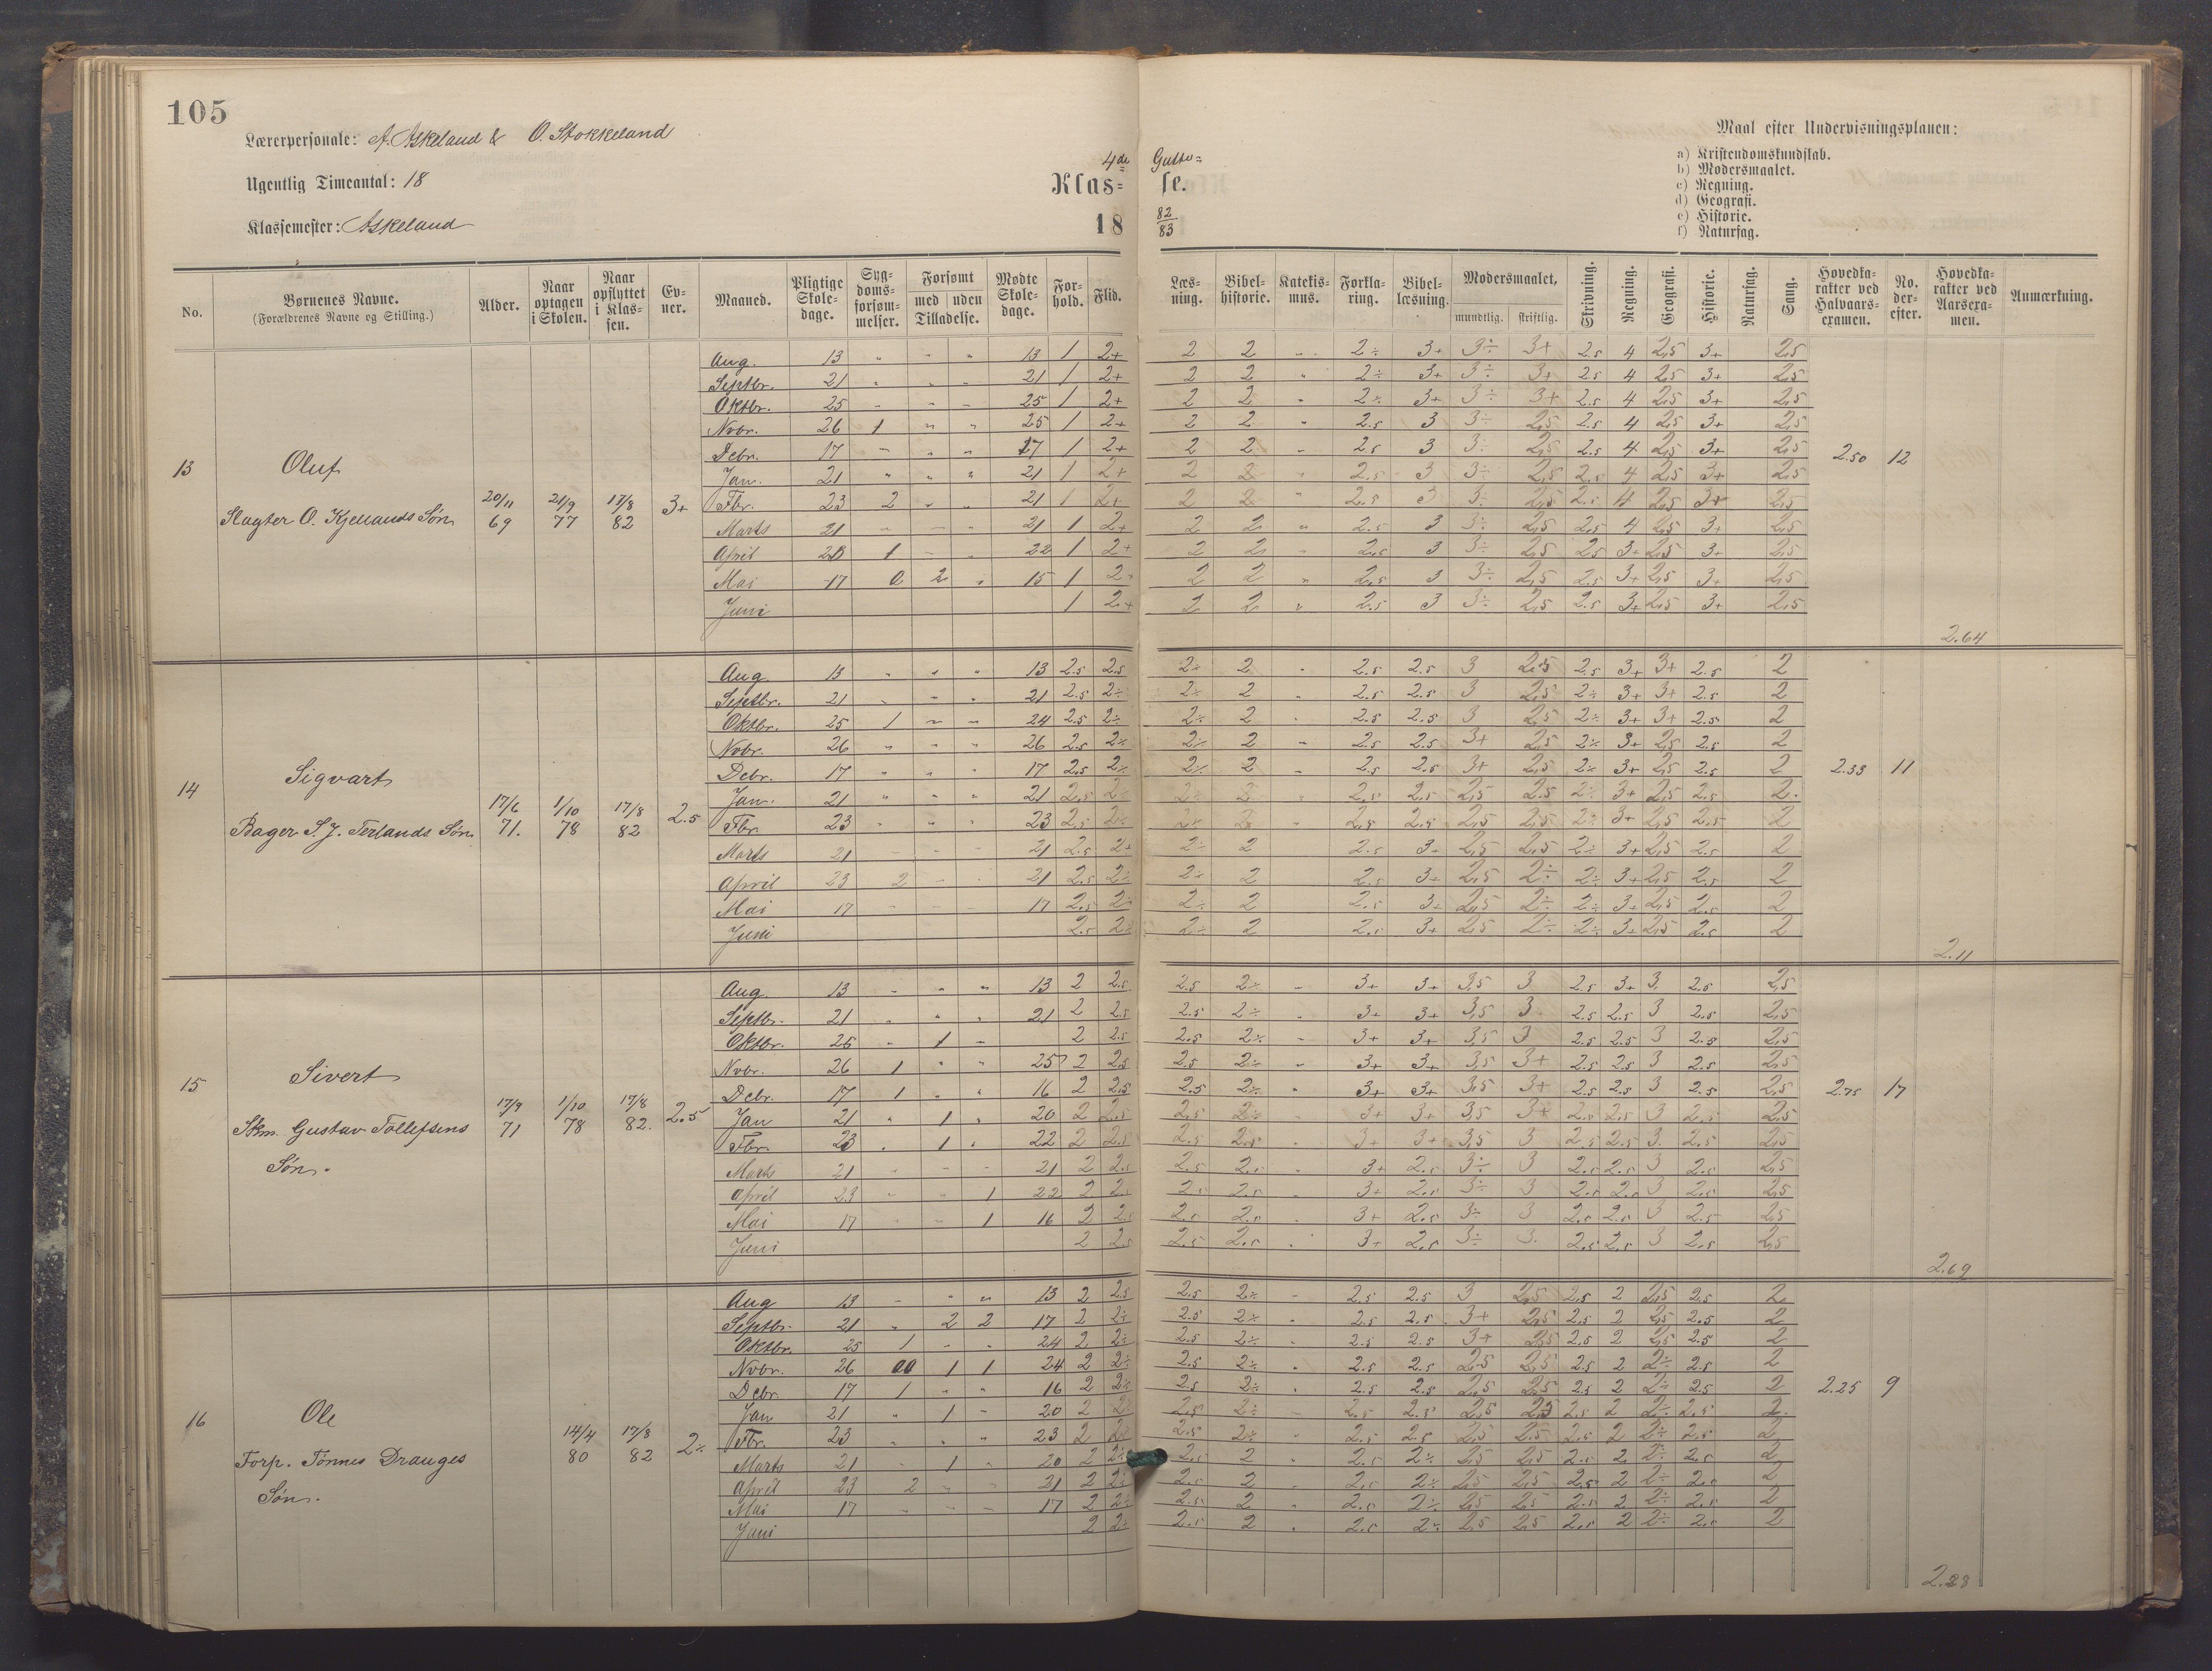 105
Lærerpersonale: A. Askeland & O. Stokkeland
Ugentlig Timeantal: 18
Klassemester: Askeland
4de Gutte=
Klas= se.
18 82/83
Maal efter Undervisningsplanen:
a) Kristendomskundskab.
b) Modersmaalet.
c) Regning.
d) Geografi.
e) Historie.
f) Naturfag.
No. | Børnenes Navne. (Forældrenes Navne og Stilling.) | Alder. | Naar optagen i Skolen. | Naar opflyttet i Klassen. | Evner. | Maaned. | Pligtige Skoledage. | Sygdomsforsømmelser. | Forsømt med Tilladelse. | uden Tilladelse. | Mødte Skoledage. | Forhold. | Flid. | Læsning. | Bibelhistorie. | Katekismus. | Forklaring. | Bibellæsning. | Modersmaalet, mundtlig. | skriftlig. | Skrivning. | Regning. | Geografi. | Historie. | Naturfag. | Sang. | Hovedkarakter ved Halvaarsexamen. | No. derefter. | Hovedkarakter ved Aarsexamen. | Anmærkning.
13 Oluf
Slagter O. Kjellands Søn 20/11 69 21/9 77 17/8 82 3+
Aug. 13 " " " 13 1 2+ 2 2 " 2÷ 3+ 3÷ 3+ 2.5 4 2,5 3+ 2,5
Septbr. 21 " " " 21 1 2+ 2 2 " 2÷ 3+ 3÷ 3+ 2.5 4 2,5 3+ 2,5
Oktbr. 25 " " " 25 1 2+ 2 2 " 2÷ 3+ 3÷ 3+ 2.5 4 2,5 3+ 2,5
Nvbr. 26 1 " " 25 1 2+ 2 2 " 2.5 3 3÷ 2,5 2.5 4 2,5 3+ 2,5
Debr. 17 " " " 17 1 2+ 2 2 " 2.5 3 3÷ 2,5 2.5 4 2,5 3+ 2,5 2.50 12
Jan. 21 " " " 21 1 2+ 2 2 " 2.5 3 3÷ 2,5 2.5 4 2,5 3+ 2,5
Fbr. 23 2 " " 21 1 2+ 2 2 " 2.5 3 3÷ 2,5 2.5 4 2,5 3+ 2,5
Marts 21 " " " 21 1 2+ 2 2 " 2.5 3 3÷ 2,5 2.5 4 2,5 3+ 2,5
April 23 1 " " 22 1 2+ 2 2 " 2.5 3 3÷ 2,5 2.5 3+ 2,5 3+ 2,5
Mai 17 0 2 " 15 1 2+ 2 2 " 2.5 3 3÷ 2,5 2.5 3+ 2,5 3+ 2,5
Juni 1 2+ 2 2 " 2.5 3 3÷ 2,5 2.5 3+ 2,5 3+ 2,5
2.64
14 Sigvart
Bager S. J. Terlands Søn. 17/6 71. 1/10 78 17/8 82 2.5
Aug. 13 " " " 13 2.5 2.5 2÷ 2 " 2.5 2.5 3 2,5 2.5 3+ 3+ 2.5 2
Septbr. 21 " " " 21 2.5 2÷ 2÷ 2 " 2.5 2.5 3 2,5 2÷ 3+ 3+ 2.5 2
Oktbr. 25 1 " " 24 2.5 2÷ 2÷ 2 " 2.5 2.5 3 2,5 2÷ 3+ 3+ 2.5 2
Nvbr. 26 " " " 26 2.5 2÷ 2÷ 2 " 2.5 2.5 3+ 2,5 2÷ 3+ 2,5 2.5 2
Debr. 17 " " " 17 2.5 2÷ 2÷ 2 " 2.5 2.5 3+ 2,5 2÷ 3+ 2,5 2.5 2 2.33 11
Jan. 21 " " " 21 2.5 2÷ 2÷ 2 " 2.5 2.5 2,5 2.5 2÷ 3+ 2,5 2.5 2.
Fbr. 23 " " " 23 2.5 2÷ 2÷ 2 " 2.5 2.5 2,5 2,5 2÷ 3+ 2,5 2.5 2
Marts 21 " " " 21 2.5 2÷ 2÷ 2 2.5 3+ 2,5 2,5 2÷ 3+ 2,5 2.5 2
April 23 2 " " 21 2.5 2÷ 2÷ 2 2.5 3+ 2,5 2÷ 2÷ 3+ 2,5 2.5 2
Mai 17 " " " 17 2.5 2÷ 2÷ 2 2.5 3+ 2,5 2÷ 2÷ 3+ 2,5 2.5 2
Juni 2.5 2÷ 2÷ 2 2.5 3+ 2,5 2÷ 2÷ 3+ 2,5 2.5 2
2.11
15 Sivert
Skm. Gustav Tollefsens Søn. 17/9 71 1/10 78 17/8 82. 2.5
Aug. 13 " " " 13 2 2.5 2.5 2÷ " 3+ 3+ 3,5 3 2.5 3+ 3. 2.5 2,5
Septbr. 21 " " " 21 2 2.5 2.5 2÷ " 3+ 3+ 3,5 3 2.5 2.5 3 2.5 2,5
Oktbr. 25 " 1 " 2 2.5 2.5 2÷ " 3+ 3+ 3,5 3 2.5 2.5 3 2.5 2,5
Nvbr. 26 1 " " 25 2 2.5 2.5 2÷ " 3+ 3+ 3,5 3+ 2.5 2.5 3 2.5 2,5
Debr. 17 1 " " 16 2 2.5 2.5 2÷ " 3+ 3+ 3,5 3+ 2.5 2.5 3 2.5 2,5 2.75 17
Jan 21 " 1 " 20 2 2.5 2.5 2÷ " 3+ 3+ 3,5 3+ 2.5 2.5 3 2.5 2,5
Fbr. 23 " 1 " 22 2 2.5 2.5 2.5 " 3+ 3+ 3,5 3 2.5 2.5 3. 2.5 2,5
Marts 21 " " " 21 2 2.5 2.5 2.5 " 3+ 2.5 3÷ 3 2.5 2.5 3 2.5 2,5
April 23 " " 1 22 2 2.5 2.5 2.5 " 3+ 2.5 3÷ 3 2.5 2.5 3 2.5 2,5
Mai 17 " " 1 16 2 2.5 2.5 2.5 " 3+ 2.5 3÷ 3 2.5 2.5 3 2.5 2,5
Juni 2 2.5 2.5 2.5 " 3+ 2.5 3÷ 3. 2.5 2.5 3 2.5 2,5
2.69
16 Ole
Forp. Tönnes Drauges Søn. 14/4 80 17/8 82 2÷
Aug 13 " " " 13 2 2.5 2.5 2÷ " 2.5 2.5 3 2,5 2.5 2 2,5 2.5 2.
Septbr. 21 " 2 2 17 2 2÷ 2.5 2÷ " 2.5 2.5 3+ 2,5 2.5 2 2,5 2.5 2
Oktbr. 25 1 " " 24 2 2÷ 2.5 2÷ " 2.5 2.5 3+ 2,5 2.5 2 2,5 2.5 2
Nvbr. 26 00 1 1 24 2 2÷ 2.5 2÷ " 2.5 2.5 2,5 2,5 2.5 2 2÷ 2.5 2
Debr. 17 1 " " 16 2 2÷ 2.5 2÷ " 2.5 2.5 2,5 2,5 2.5 2 2÷ 2.5 2 2.25 9
Jan 21 " 1 " 20 2 2÷ 2.5 2÷ " 2.5 2.5 2,5 2,5 2.5 2 2÷ 2.5 2.
Fbr. 23 " " " 23 2 2÷ 2.5 2÷ " 2.5 2.5 2,5 2.5 2.5 2 2÷ 2.5 2
Marts 21 " 1 " 20 2 2÷ 2.5 2 " 2.5 2÷ 2,5 2,5 2.5 2 2÷ 2.5 2
April 23 2 " " 21 2 2÷ 2.5 2 " 2.5 2÷ 2,5 2,5 2.5 2 2÷ 2.5 2
Mai 17 " " " 17 2 2÷ 2.5 2 " 2.5 2÷ 2,5 2,5 2.5 2 2÷ 2.5 2
Juni 2 2÷ 2.5 2 " 2.5 2÷ 2,5 2,5 2.5 2 2÷ 2.5 2
2.28